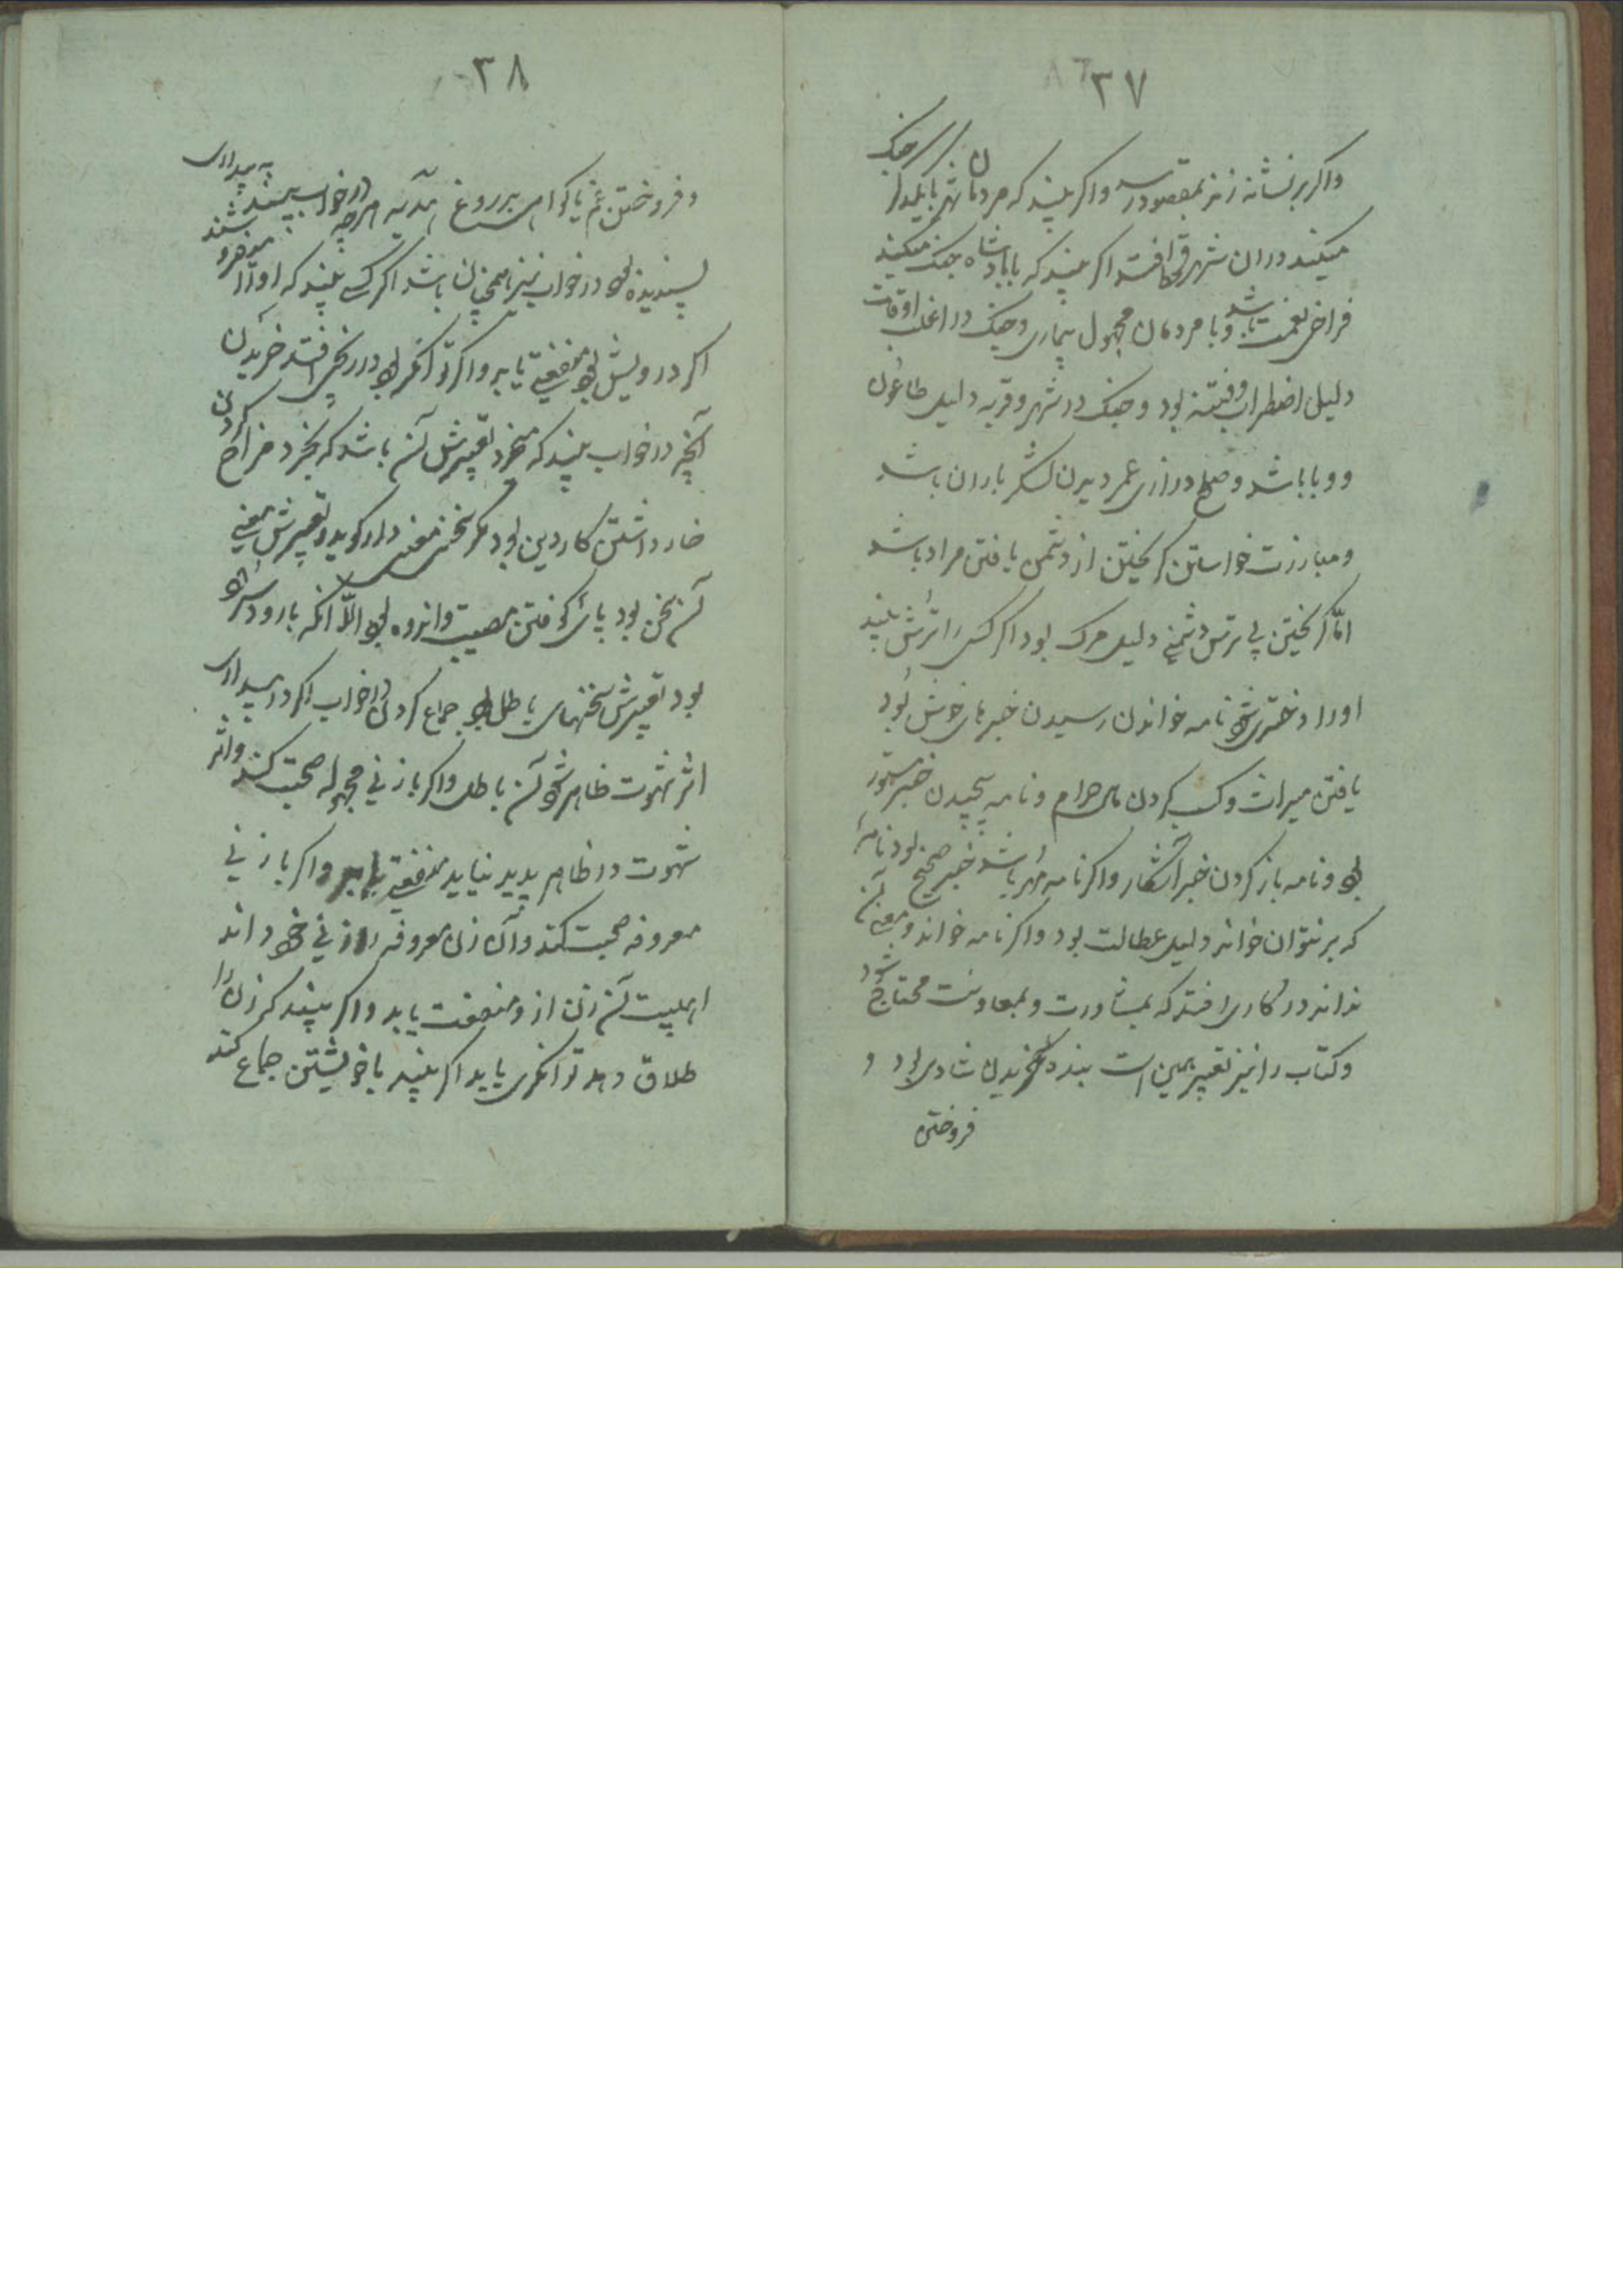 ٣٧
واکر بر نشانه زند بمقصود رسد واکر بیند که مردمان شهر با یکدیکر جنک
میکنند در ان شهر قحط افتد اکر بیند که با پادشاه جنک میکنند
فراخی نعمت باشد وبا مردمان مجهول بیماری وجنک در اغلب اوقات
دلیل اضطراب وفتنه بود وجنک در شهر وقریه دلیل طاعون
ووبا باشد وصلح درازی عمر دیدن لشکر باران باشد
ومبارزت خواستن کریختن از دشمن یافتن مراد باشد
امّا کریختن بی ترس دشمنی دلیل مرک بود اکر کسی را ترش بیند
اورا دختری شود نامه خواندن رسیدن خبرهای خوش بود
یافتن میراث وکسب کردن مال حرام ونامه پیچیدن خبر مستور
بود ونامه باز کردن خبر آشکار واکر نامه مهر باشد خبر صحیح بود نامۀ
که بر نتوان خواند دلیل عطالت بود واکر نامه خواند ومعنی آن
نداند در کاری افتد که بمشاورت وبمعاونت محتاج شود
وکتاب را نیز تعبیر همین است بنده خریدن شادی بود و
فروختن
٣٨
وفروختن غم یا کواهی بر دروغ هرچه در خواب بینند به بیداری
پسندیده بود در خواب نیز همچنان باشد اکر کسی بیند که اورا میفروشند
اکر درویش بود منفعتی یابد واکر توانکر بود در رنجی افتد خریدن
آنچه در خواب بیند که میخرد تعبیرش آن باشد که بخرد مزاح کردن
خار داشتن کار دین بود مکر سخنی معنی دار کوید وتعبیرش معنی
آن سخن بود پای کوفتن مصیبت واندوه بود الّا انکه با رود وسرود
بود تعبیرش سخنهای باطل بود جماع کردن در خواب اکر در بیداری
اثر شهوت ظاهر شود آن باطل واکر با زنی مجهوله صحبت کند واثر
شهوت در ظاهر پدید نیاید منفعتی یابد واکر با زنی
معروفه صحبت کند وآن زن معروفه را زنی خود داند
اهلبیت آن زن از و منفعت یابد واکر بیند که زن را
طلاق دهد توانکری یابد اکر بیند با خویشتن جماع کند